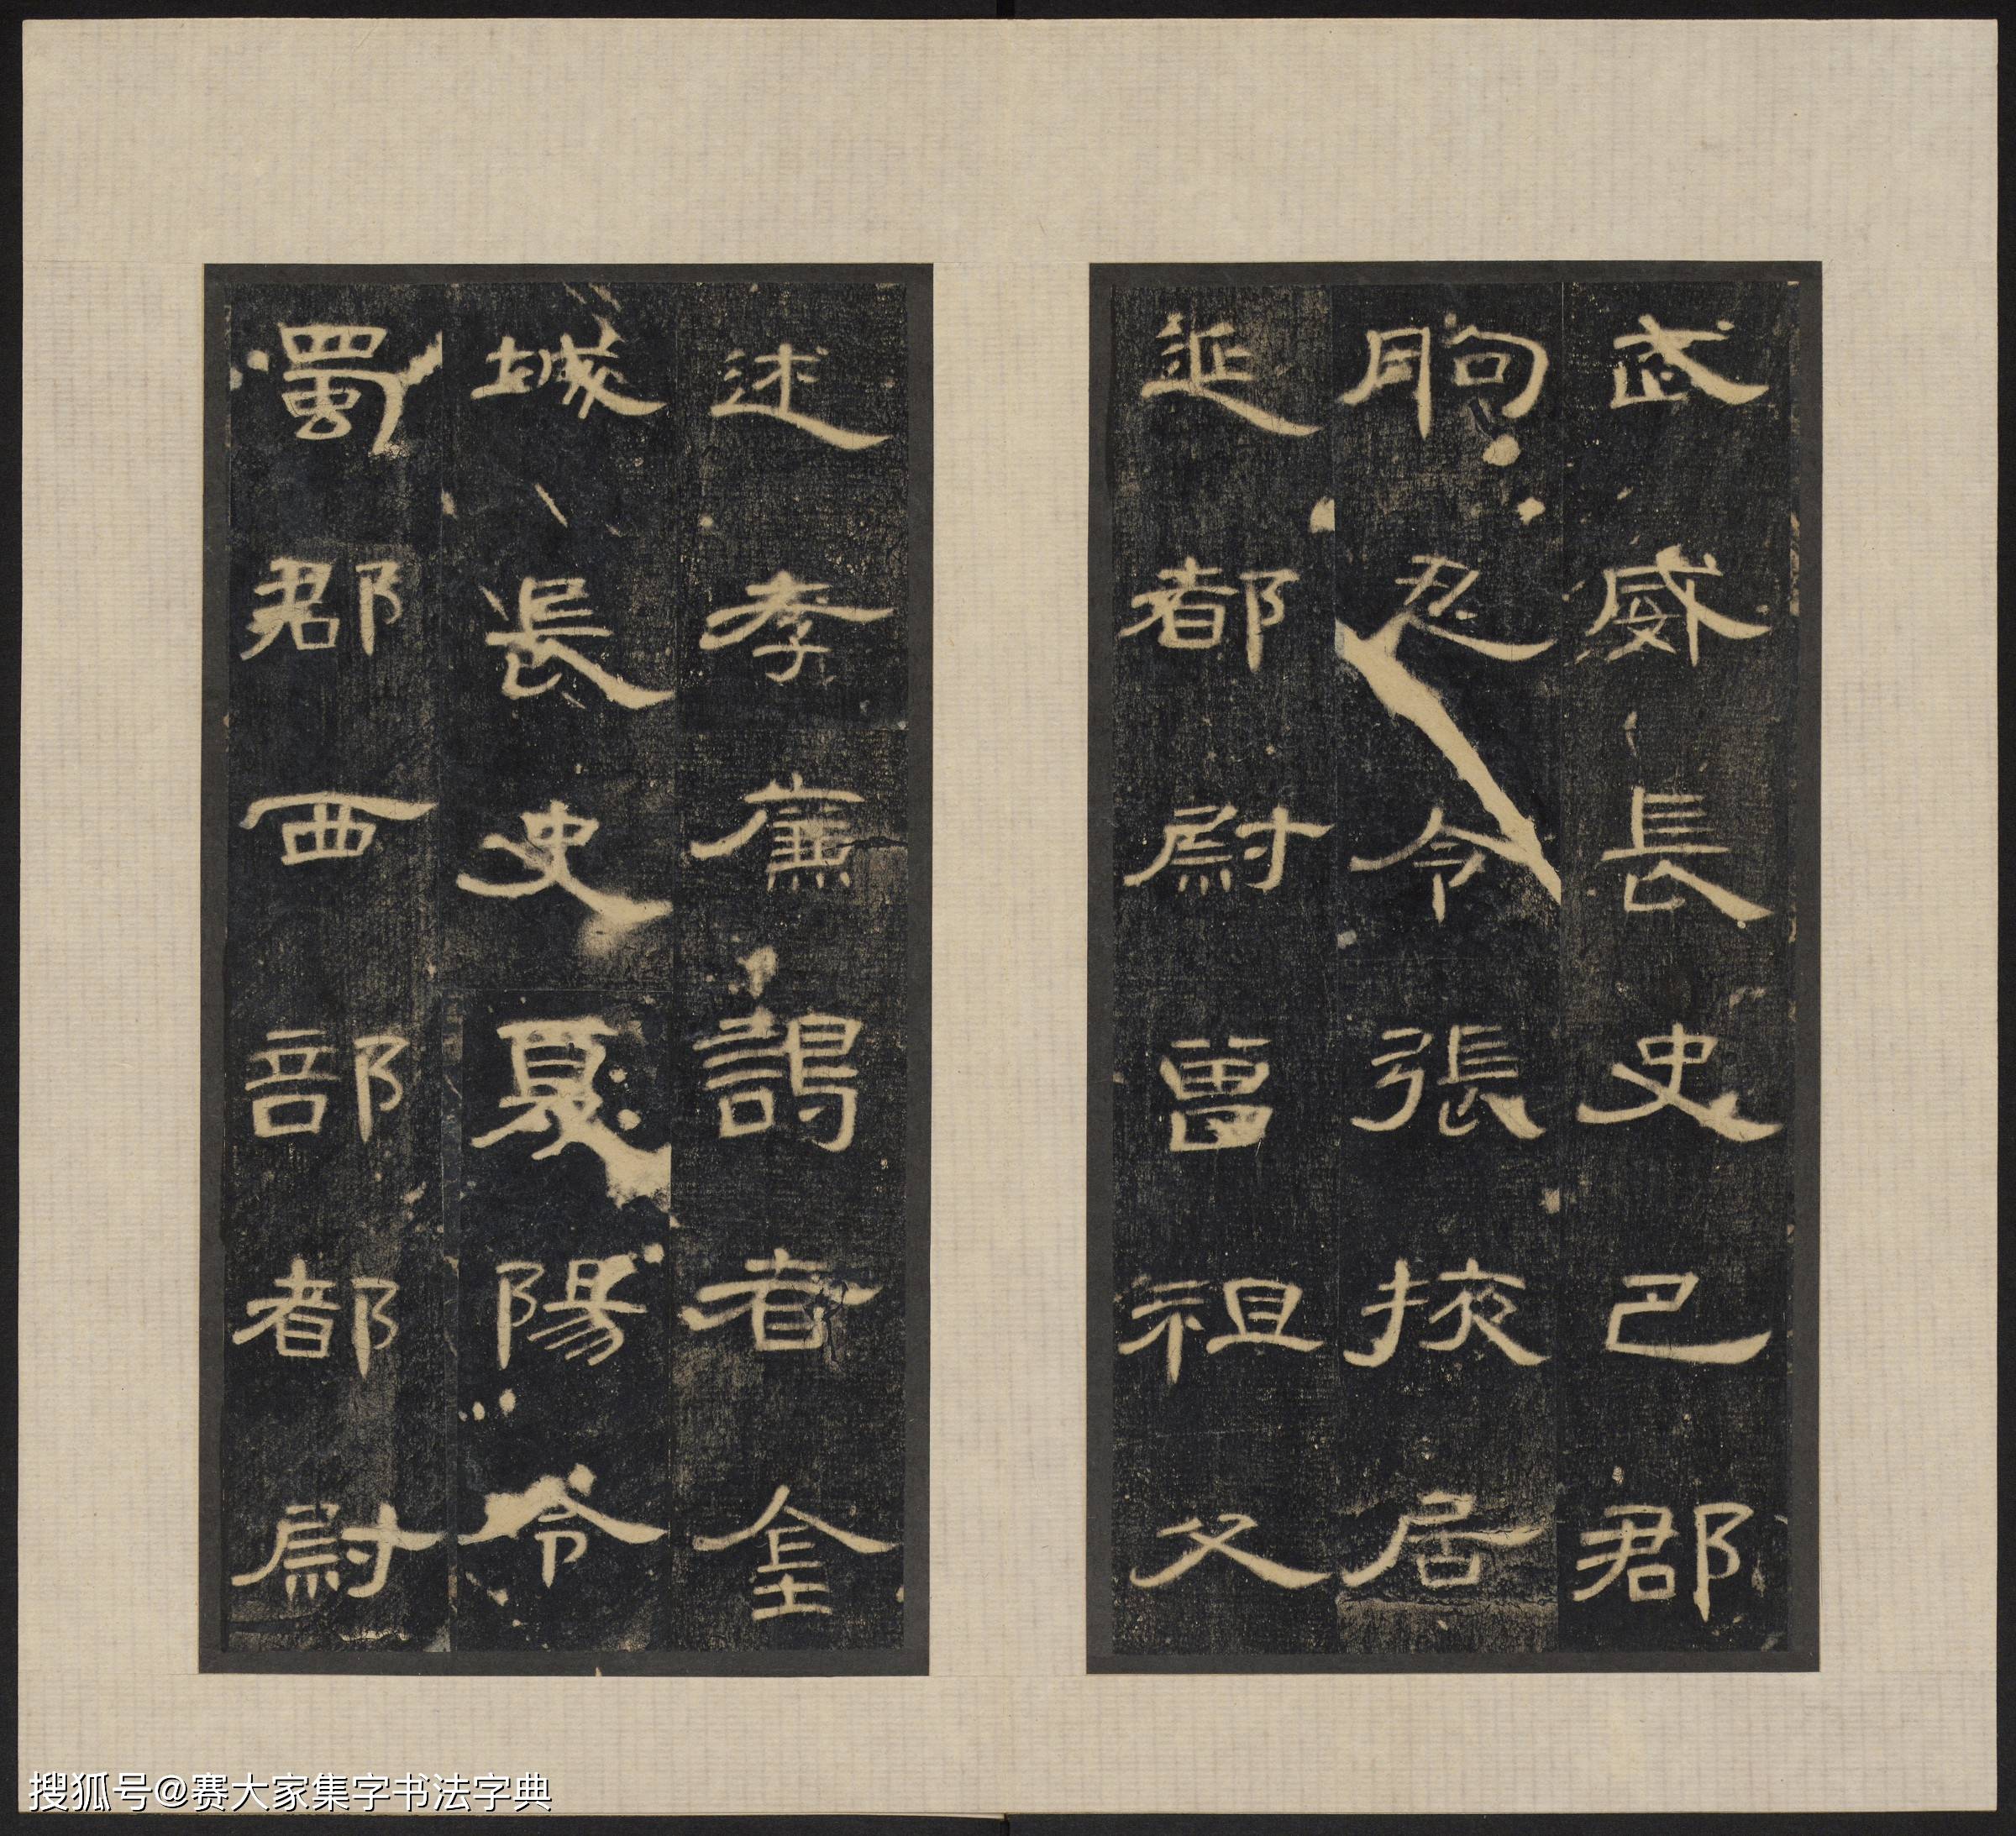 武威長史巴郡
朐忍令張掖居
延都尉曾祖父
述孝廉謁者金
城長史夏陽令
蜀郡西部都尉
搜狐号@赛大家集字书法字典